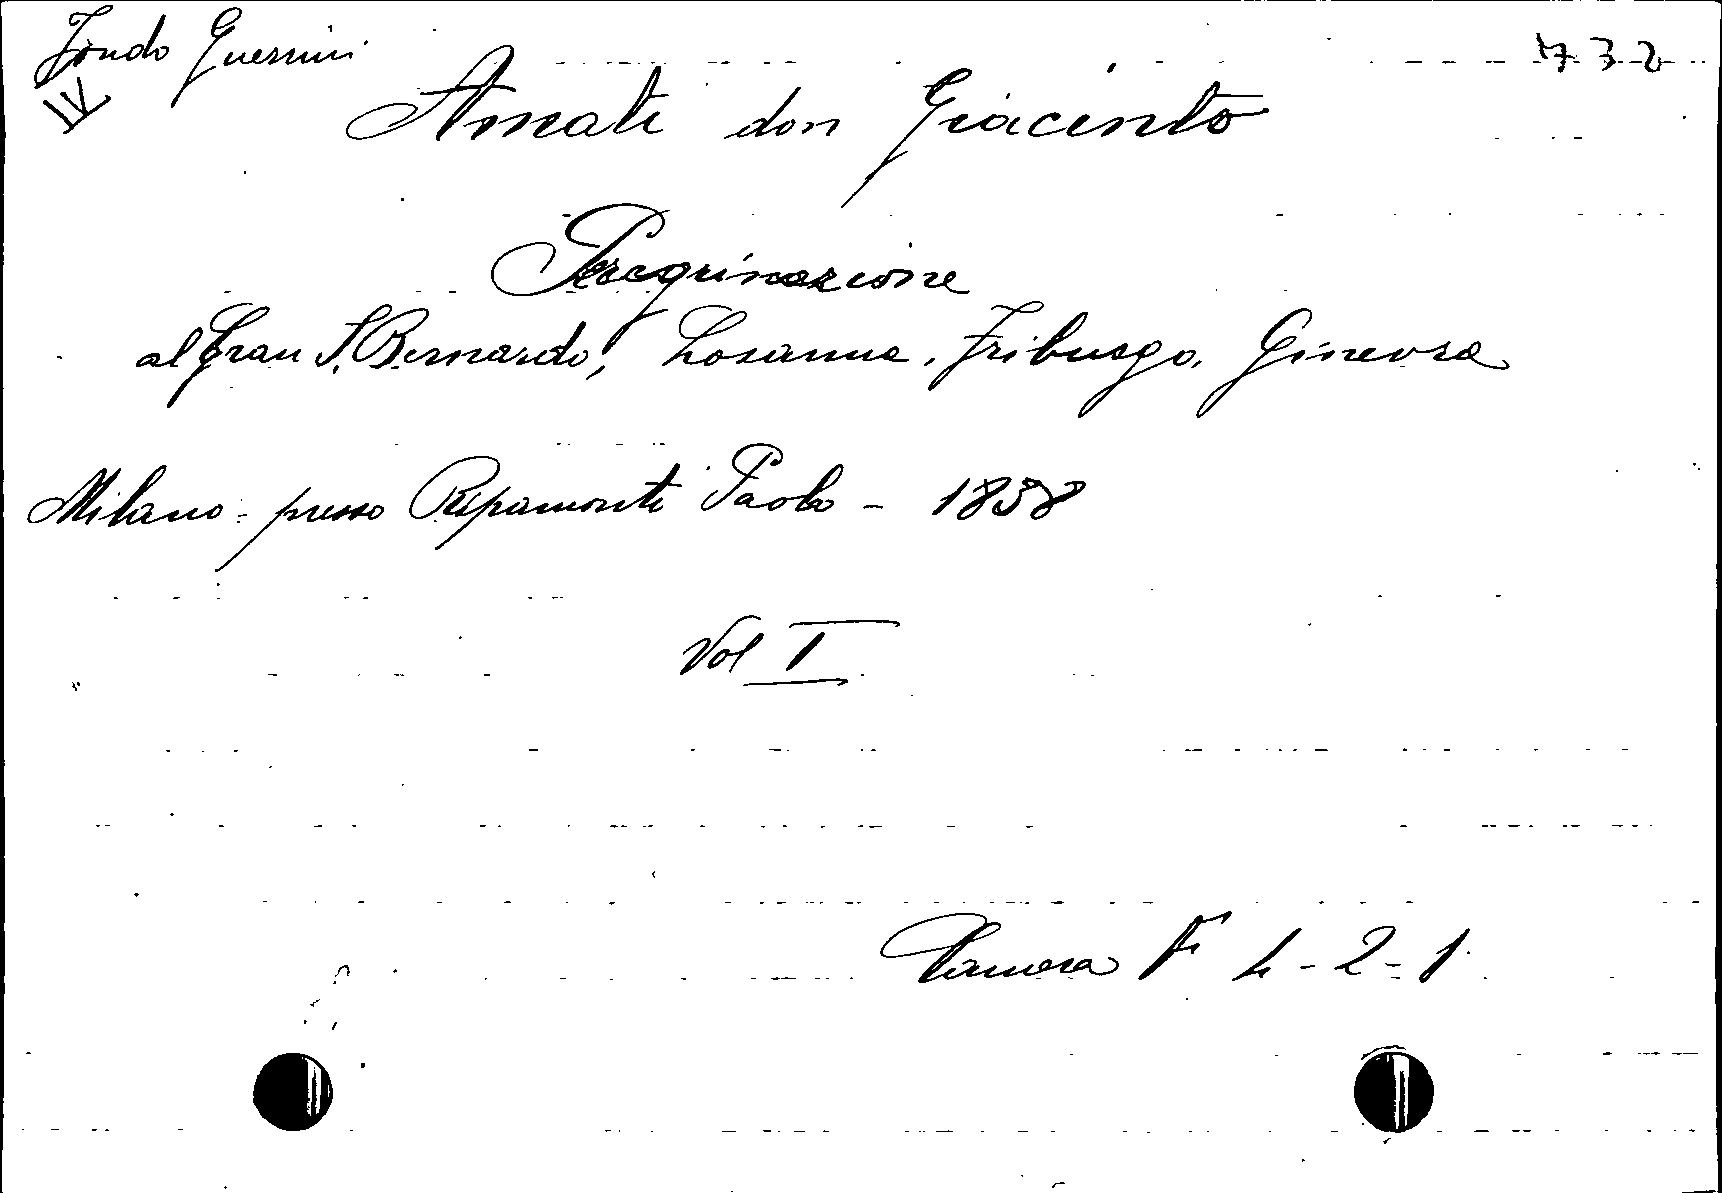 Fondo Guerrini
IV
732
Amati don Giacinto
Peregrinazione
al Gran S. Bernardo, Losanna, Friburgo, Ginevra
Milano - presso Ripamonti Paolo - 1838
Vol I
Camera F 4 - 2 - 1